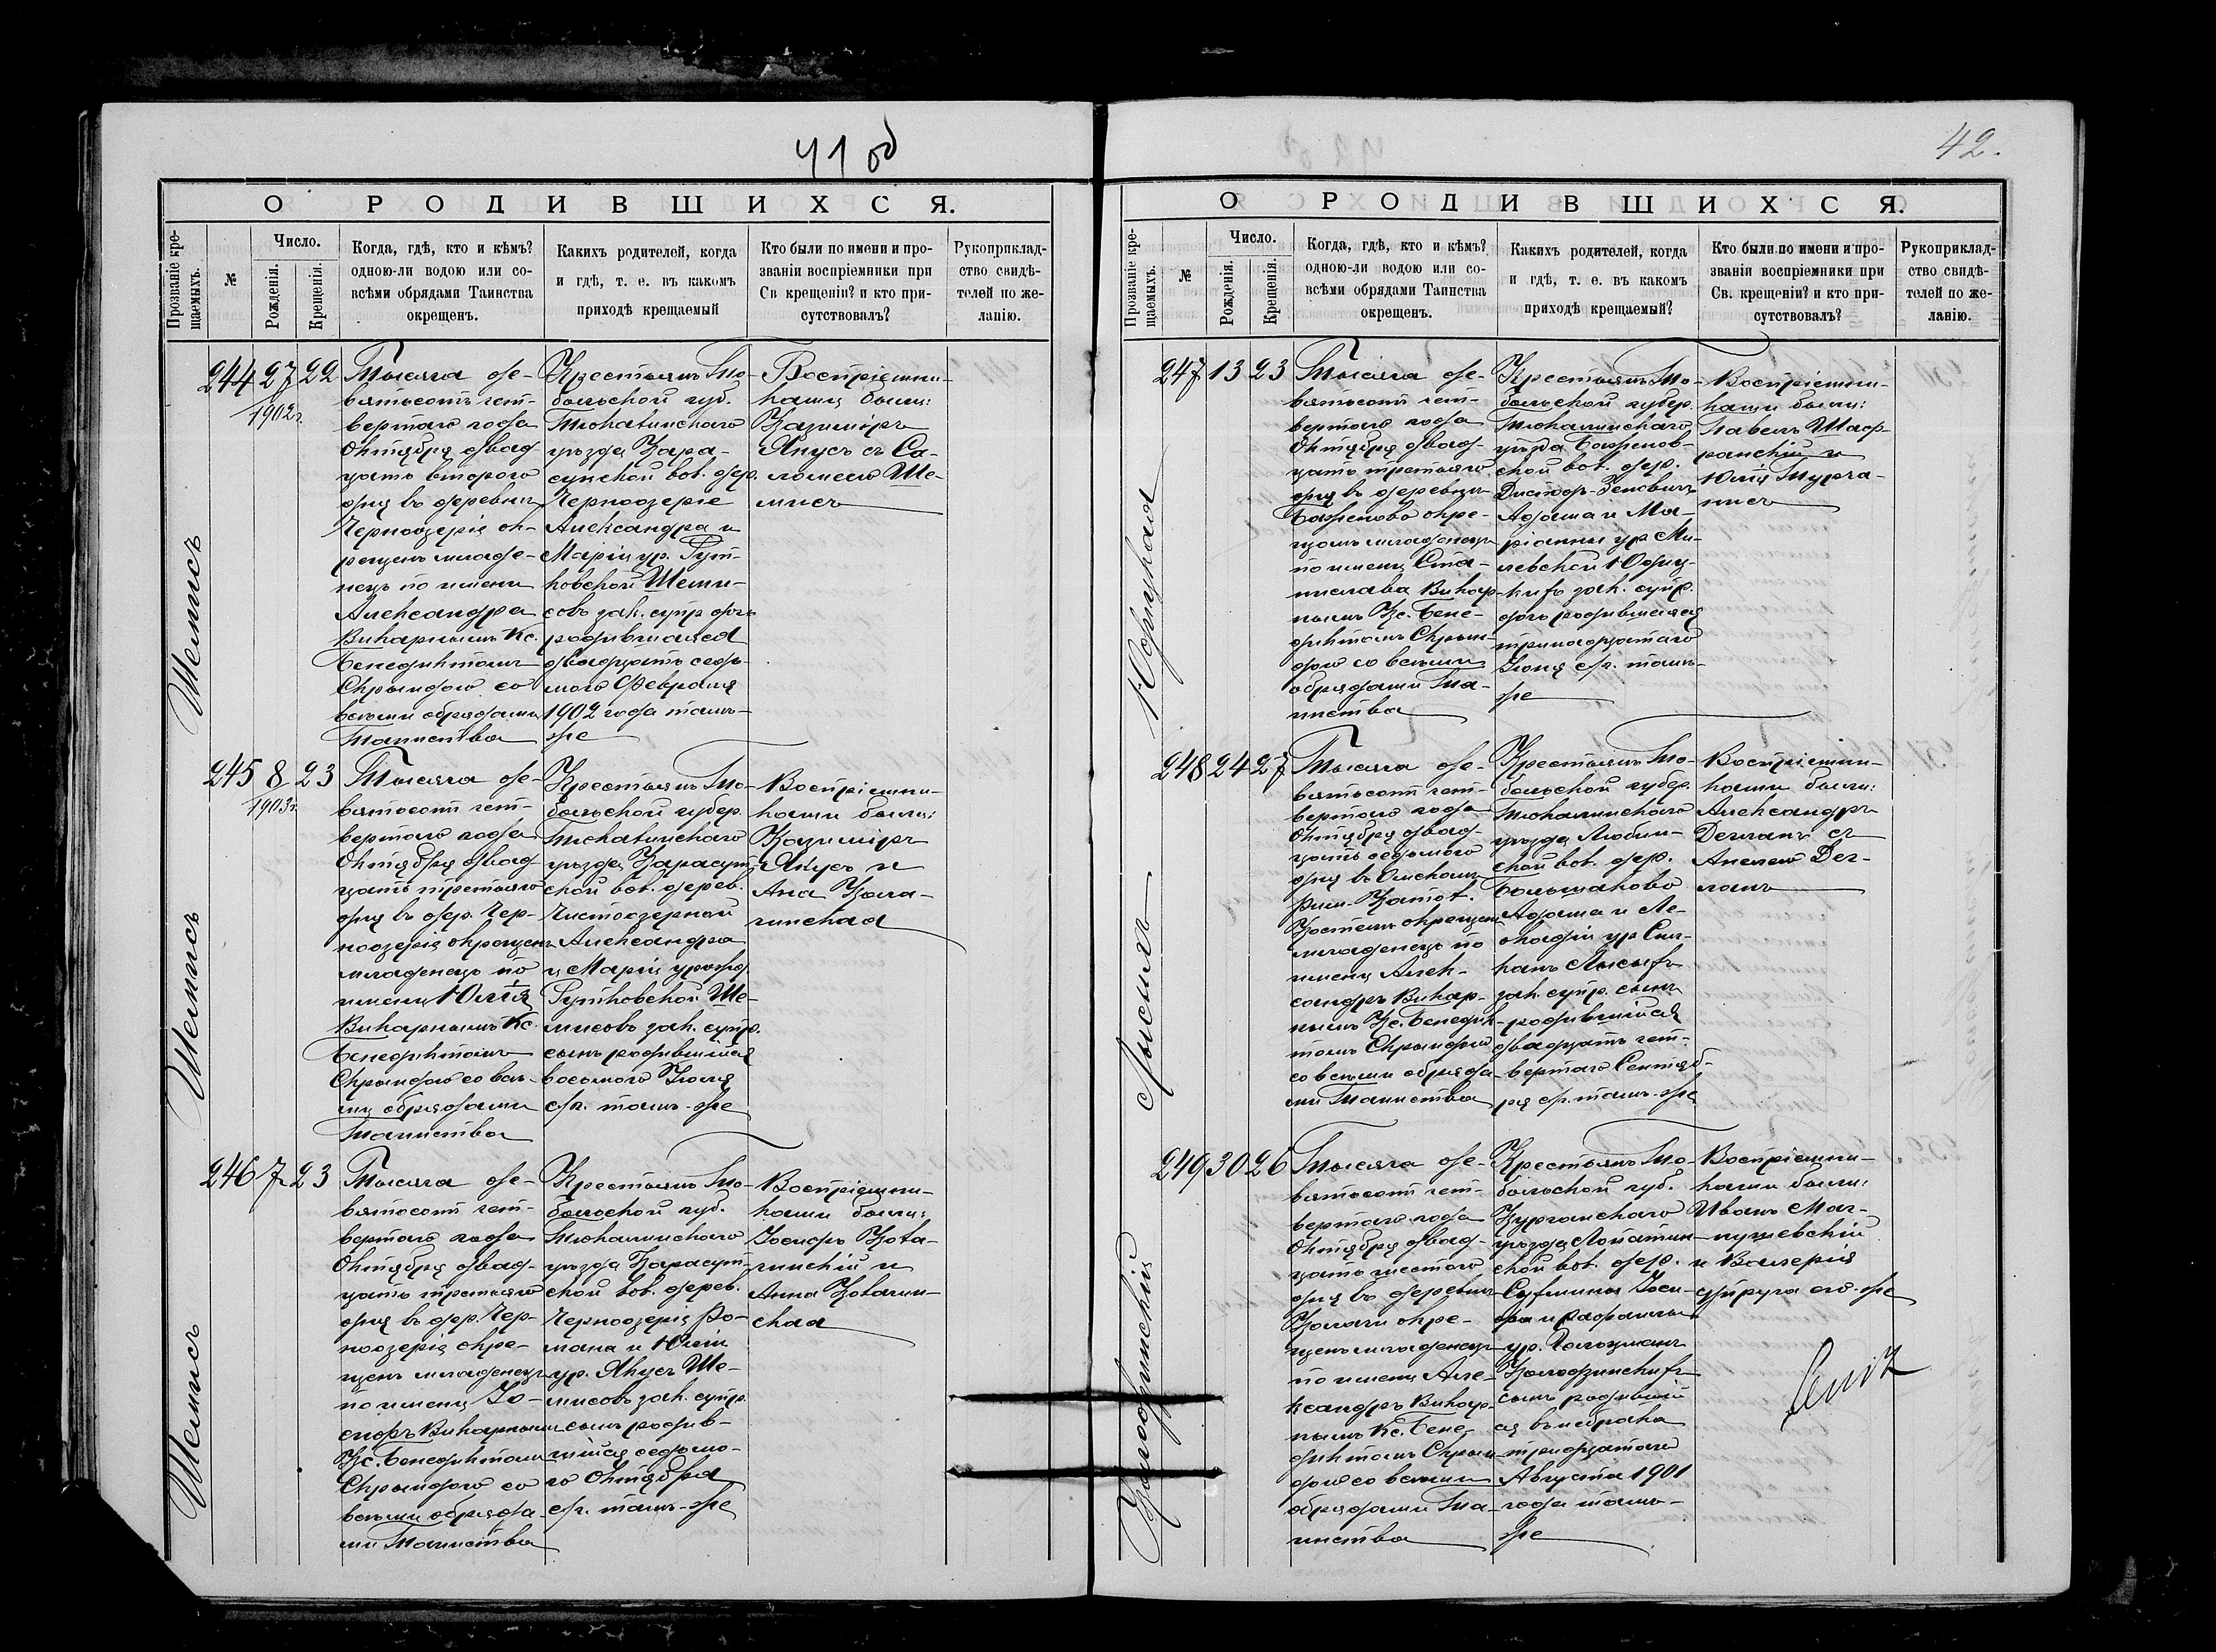 41 об
О РОДИВШИХСЯ.
Прозваніе кре-
щаемыхъ.
№
Число.
Рожденія.
Крещенія.
Когда, гдѣ, кто и кѣмъ?
одною-ли водою или со-
всѣми обрядами Таинства
окрещенъ.
Какихъ родителей, когда
и гдѣ, т. е. въ какомъ
приходѣ крещаемый
Кто были по имени и про-
званіи воспріемники при
Св крещеніи? и кто при-
сутствовалъ?
Рукоприклад-
ство свидѣ-
телей по же-
ланію.
Шемисъ
244
27
1902 г.
22
Тысяча де-
вятьсотъ чет-
вертаго года
Октября двад-
цать второго
дня въ деревнѣ
Черноозеріе ок-
рещенъ младе-
нецъ по имени
Александра
Викарнымъ Кс.
Бенедиктомъ
Скрындою со
всѣми обрядами
Таинства
Крестьянъ То-
больской губ.
Тюкалинскаго
уѣзда Кара-
сукской вол. дер.
Черноозеріе
Александра и
Маріи ур. Гут-
ковской Шеми-
совъ зак. супр. дочь
родившаяся
двадцать седь-
мого Февраля
1902 года тамъ-
же
Воспріемни-
ками были:
Казиміръ
Янусъ съ Са-
ломеею Ше-
мисъ
Шемисъ
245
8
1903 г.
23
Тысяча де-
вятьсотъ чет-
вертаго года
Октября двад-
цать третьяго
дня въ дер. Чер-
ноозеріе окрещенъ
младенецъ по
имени Юлія
Викарнымъ Кс.
Бенедиктомъ
Скрындою со всѣ-
ми обрядами
Таинства
Крестьянъ То-
больской губер.
Тюкалинскаго
уѣзда Карасук-
ской вол. дерев.
Чистоозерной
Александра
и Маріи урожд.
Гутковской Ше-
мисовъ зак. супр.
сынъ родившійся
восьмого Іюля
с/г. тамъ-же
Воспріемни-
ками были:
Казиміръ
Янусъ и
Ана
Шемисъ
246
7
23
Тысяча де-
вятьсотъ чет-
вертаго года
Октября двад-
цать третьяго
дня въ дер. Чер-
ноозеріе окре-
щенъ младенецъ
по имени Іо-
сифъ Викарнымъ
Кс. Бенедиктомъ
Скрындою со
всѣми обряда-
ми Таинства
Крестьянъ То-
больской губ.
Тюкалинскаго
уѣзда Карасук-
ской вол. дерев.
Черноозеріе Ро-
мана и Юліи
ур. Янусъ Ше-
мисовъ зак. супр.
сынъ родив-
шійся седьмо-
го Октября
с/г. тамъ-же
Воспріемни-
ками были:
Іосифъ Кова-
линскій и
Анна Ковалин-
ская
42.
О РОДИВШИХСЯ.
Прозваніе кре-
щаемыхъ.
№
Число.
Рожденія.
Крещенія.
Когда, гдѣ, кто и кѣмъ?
одною-ли водою или со-
всѣми обрядами Таинства
окрещенъ.
Какихъ родителей, когда
и гдѣ, т. е. въ какомъ
приходѣ крещаемый?
Кто были по имени и про-
званіи воспріемники при
Св. крещеніи? и кто при-
сутствовалъ?
Рукоприклад-
ство свидѣ-
телей по же-
ланію.
Юдицкая
247
13
23
Тысяча де-
вятьсотъ чет-
вертаго года
Октября двад-
цать третьяго
дня въ деревнѣ
Баженово окре-
щенъ младенецъ
по имени Ста-
нислава Викар-
нымъ Кс. Бене-
диктомъ Скрын-
дою со всѣми
обрядами Та-
инства
Крестьянъ То-
больской губер.
Тюкалинскаго
уѣзда Баженов-
ской вол. дер.
Адама и Ма-
ріанны ур. Ми-
левской Юдиц-
кихъ зак. супр.
дочь родившаяся
тринадцатаго
Іюня с/г. тамъ-
же
Воспріемни-
ками были:
Павелъ Шаф-
ранскій и
Юлія
Лысихъ
248
24
27
Тысяча де-
вятьсотъ чет-
вертаго года
Октября двад-
цать седьмого
дня въ Омскомъ
Рим-Катол.
Костелѣ окрещенъ
младенецъ по
имени Алек-
сандръ Викар-
нымъ Кс. Бенедик-
томъ Скрындою
со всѣми обряда-
ми Таинства
Крестьянъ То-
больской губер.
Тюкалинскаго
уѣзда Любин-
ской вол. дер.
Большаково
Адама и Ле-
окадіи ур.
Лысыхъ
зак. супр. сынъ
родившійся
двадцать чет-
вертаго Сентяб-
ря с/г. тамъ-же
Воспріемни-
ками были:
Александръ
съ
249
30
26
Тысяча де-
вятьсотъ чет-
вертаго года
Октября двад-
цать шестого
дня въ деревнѣ
окре-
щенъ младенецъ
по имени Але-
ксандръ Викар-
нымъ Кс. Бене-
диктомъ Скрын-
дою со всѣми
обрядами Та-
инства
Крестьянъ То-
больской губ.
Курганскаго
уѣзда Лопатин-
ской вол. дер.
сынъ родивший-
ся внѣ брака
тридцатаго
Августа 1901
года тамъ-
же
Воспріемни-
ками были:
Иванъ
и Валерія
супруга его-же